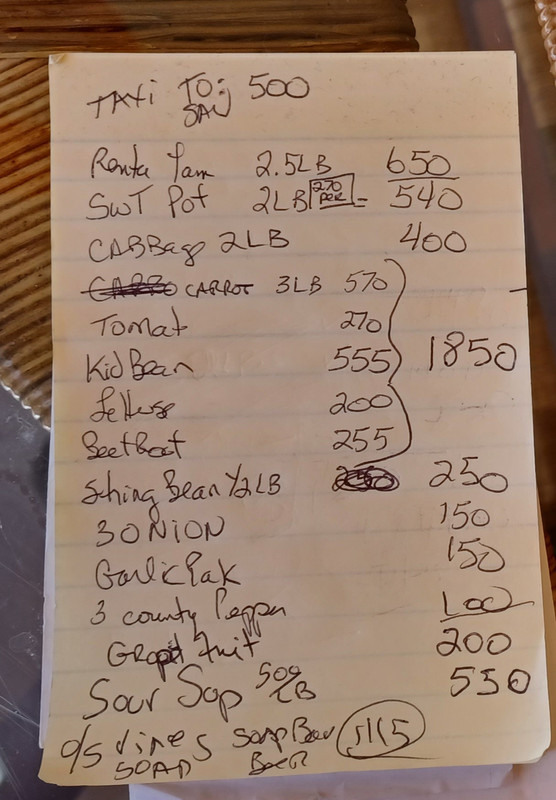 TAXi TO: SAV 500
Renta Yam 2.5LB 650
SWT Pot 2LB 270 PER = 540
CABBage 2LB 400
CARROT 3LB 570
Tomat 270
Kid Bean 555 1850
Lettuse 200
BeetRoot 255
String Bean 1/2 LB 250
3 ONiON 150
Garlic Pak 150
3 county Pepper 100
Grap fruit 200
Sour Sop 500 LB 550
SOAP